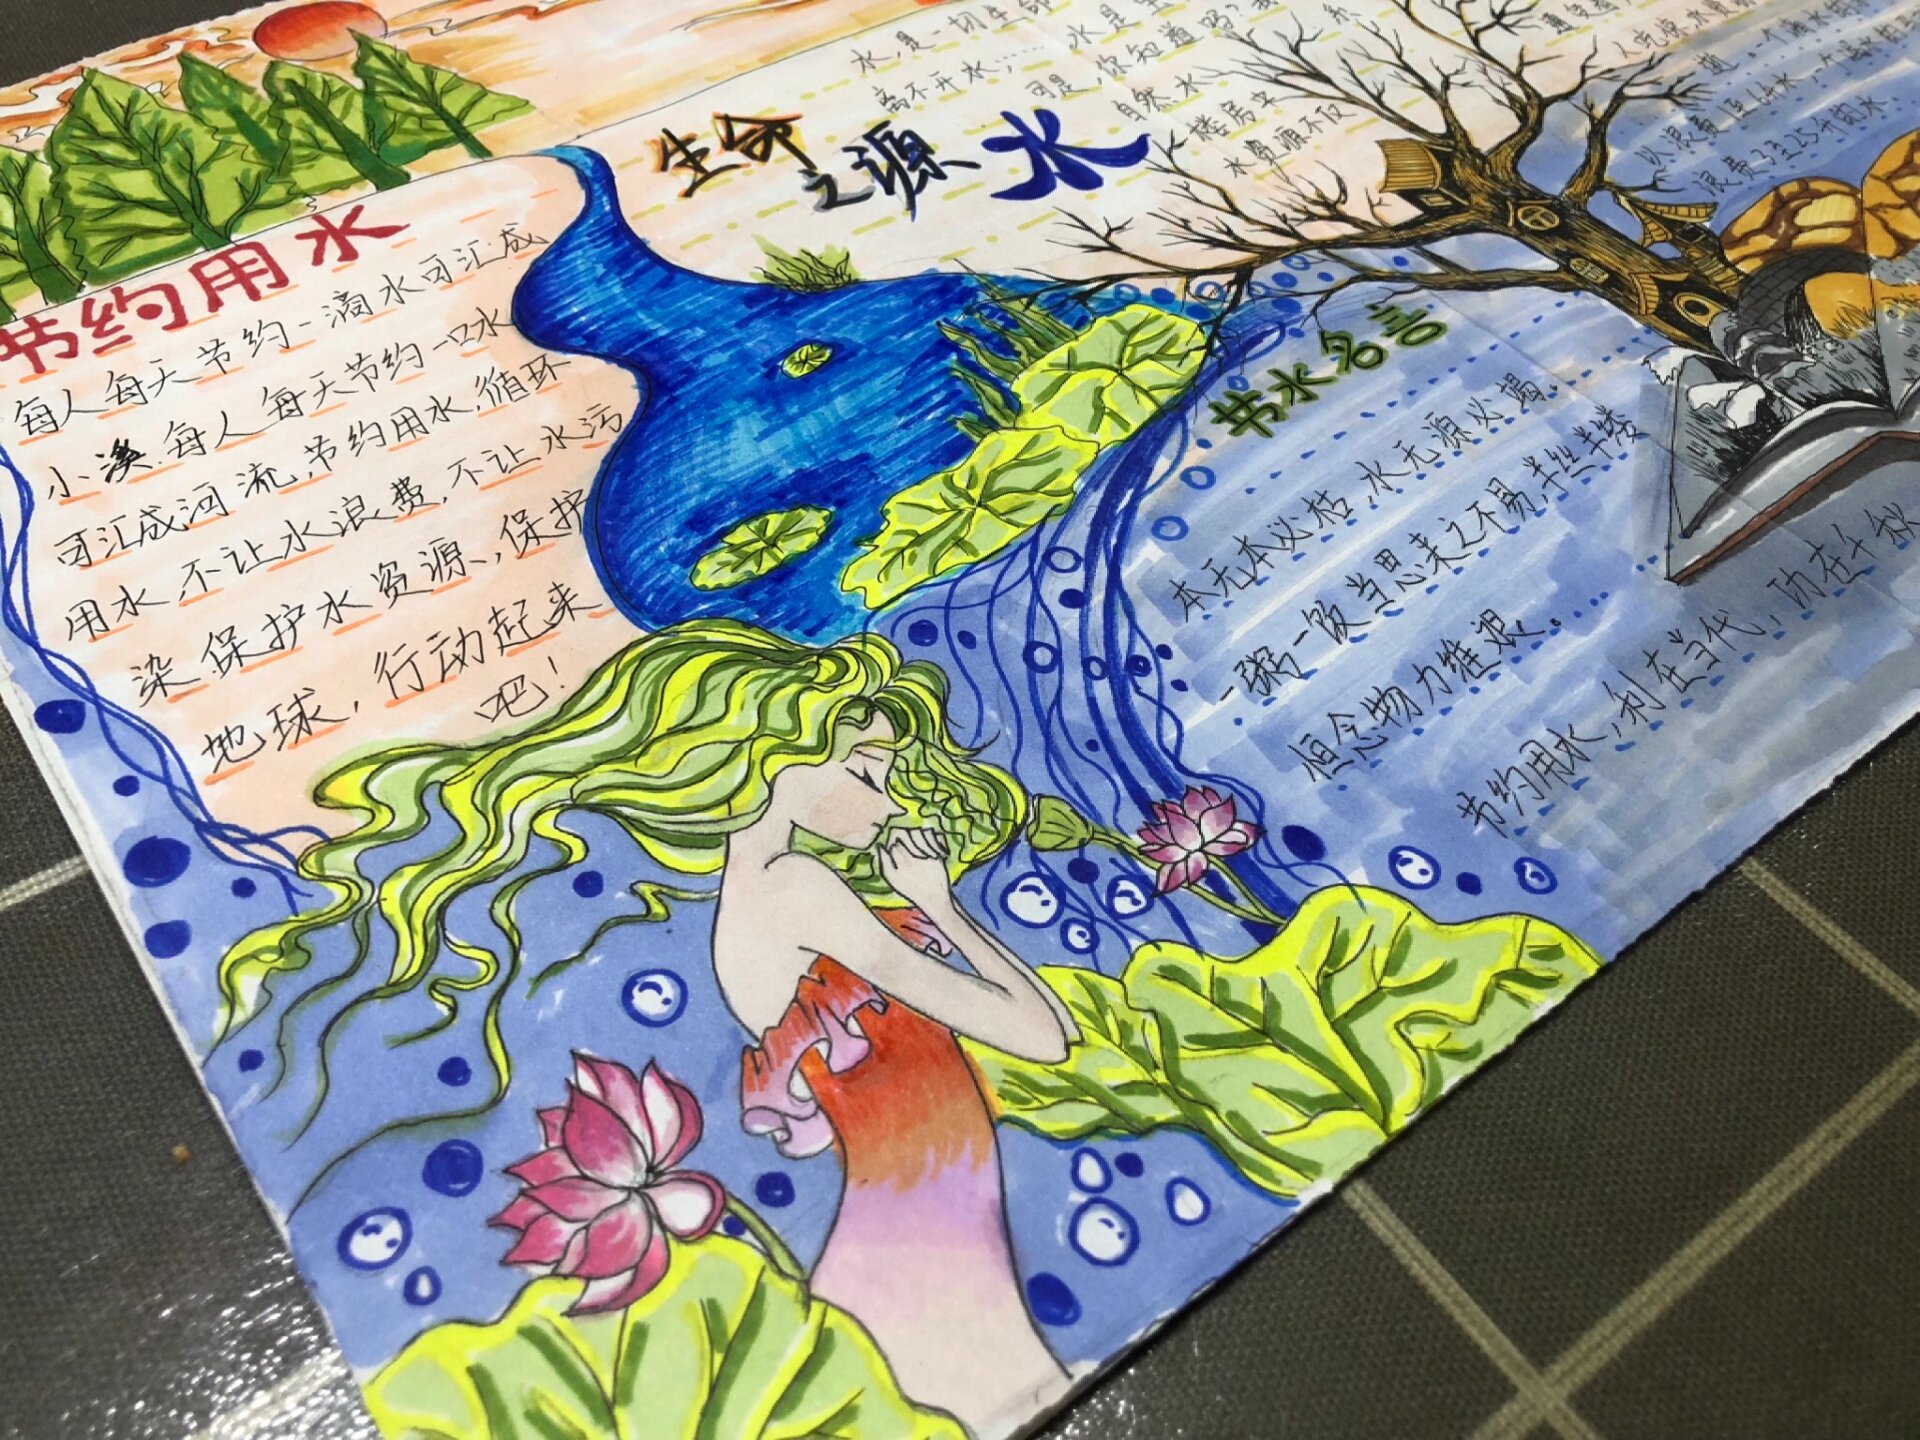 生命之源水
水,是一切生命
离不开水……
水是宝
可是,你知道吗?我
自然水
系
楼房牢
水资源不仅
以浪费1至6升水,一个漏水的
浪费3至25升的水.
节约用水
每人每天节约一滴水可汇成
小溪.每人每天节约一口水
可汇成河流.节约用水.循环
用水.不让水浪费.不让水污
染.保护水资源、保护
地球,行动起来
吧!
节水名言
本无本必枯,水无源必塌.
一粥一饭当思来之不易,半丝半缕
恒念物力维艰.……
节约用水,利在当代,功在千秋